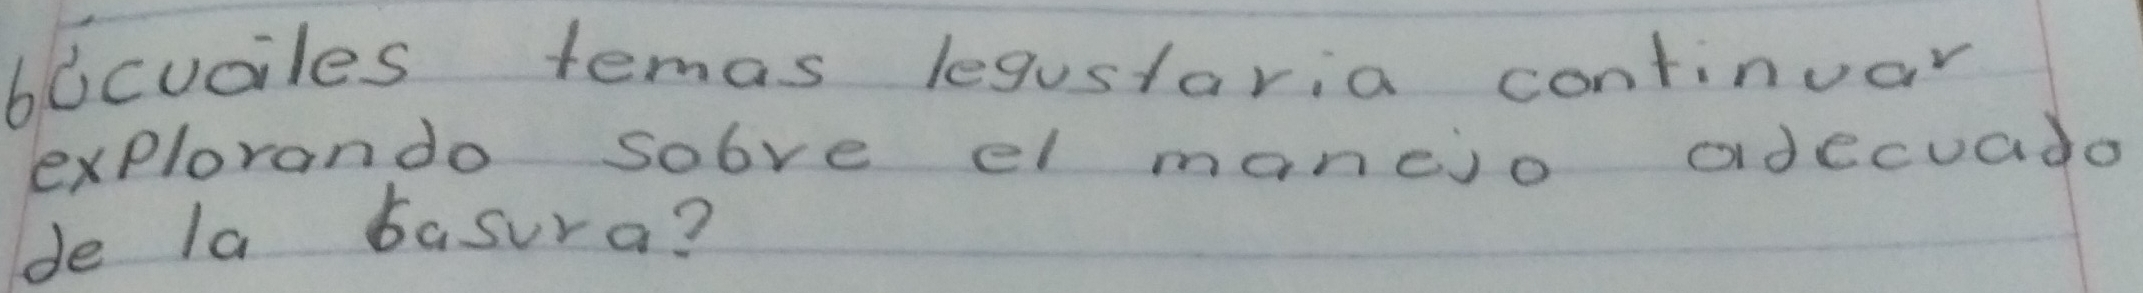 6¿cuáles temas legustaria continuar
explorando sobre el manejo adecuado
de la basura?